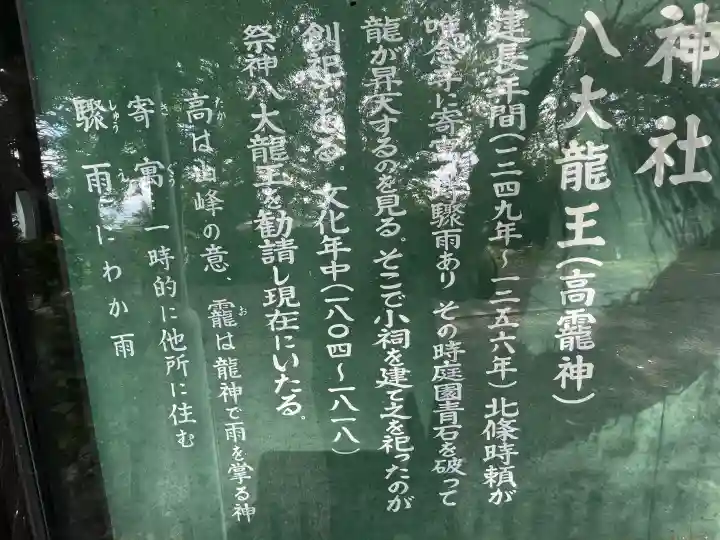 神社
八大龍王(高龗神)
建長年間(一二四九年〜一二五六年)北條時頼が
唯念寺に寄寓の時驟雨あり その時庭園青石を破って
龍が昇天するのを見る。そこで小祠を建て之を祀ったのが
創祀である。文化年中(一八〇四〜一八一八)
祭神八大龍王を勧請し現在にいたる。
高は山峰の意、龗は龍神で雨を掌る神
たか お
寄寓 一時的に他所に住む
き ぐう
驟雨 にわか雨
しゅう